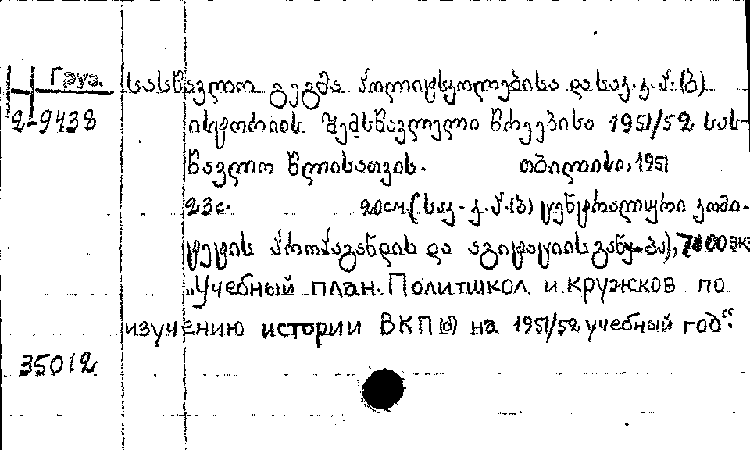 Груз.
2-9438
სასწავლო გეგმა პოლიტსკოლებისა და საკ. კ. პ. (ბ)
ისტორიის შემსწავლელი წრეებისა 1951/52 სას-
წავლო წლისათვის. თბილისი, 1951
23с. 20см. (საკ. კ. პ. (ბ) ცენტრალური კომი-
ტეტის პროპაგანდის და აგიტაციის განყ-ბა), 7000 экз
„Учебный план. Политшкол и кружков по
изучению истории ВКП(б) на 1951/52 учебный год“.
35012